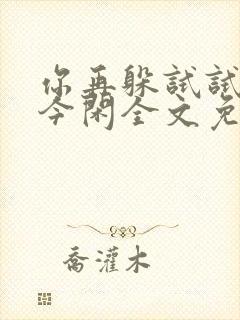 你再躲试试
今闲全文免
乔灌木